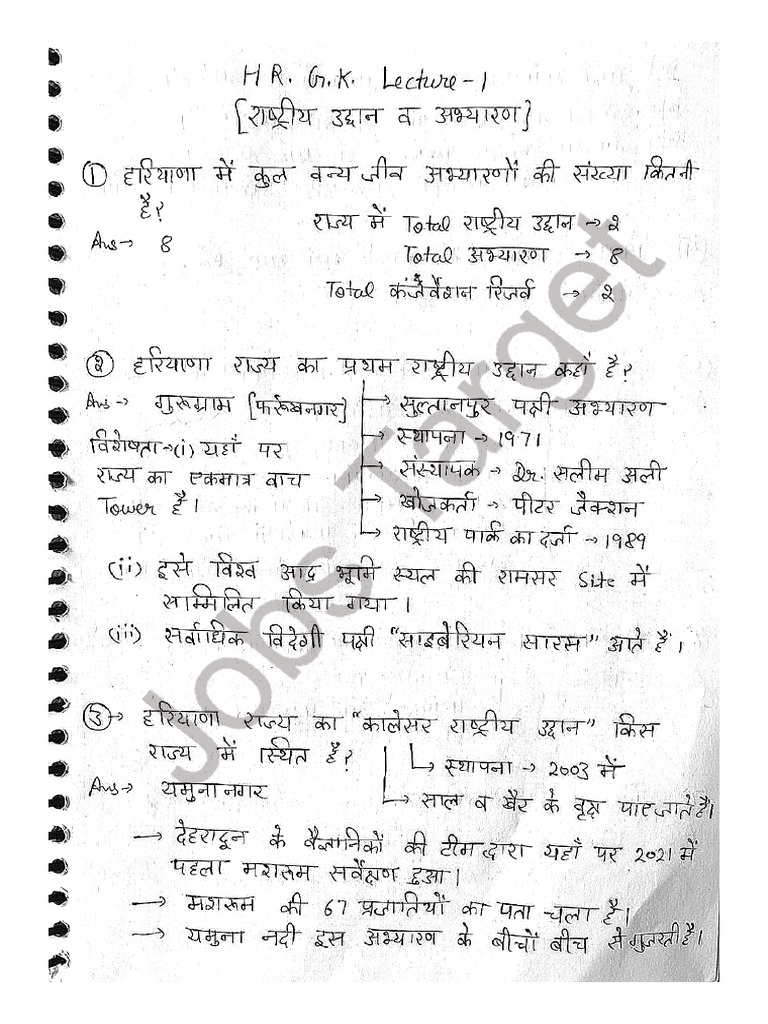 HR. G.K. Lecture-1
[राष्ट्रीय उद्दान व अभ्यारण]
① हरियाणा में कुल वन्य जीव अभ्यारणों की संख्या कितनी
है?
Ans→ 8
राज्य में Total राष्ट्रीय उद्दान → 2
Total अभ्यारण → 8
Total कंजर्वेशन रिजर्व → 2
② हरियाणा राज्य का प्रथम राष्ट्रीय उद्दान कहाँ है?
Ans → गुरूग्राम [फर्रूखनगर]
→ सुल्तानपुर पक्षी अभ्यारण
→ स्थापना → 1971
→ संस्थापक → Dr. सलीम अली
→ खोजकर्ता → पीटर जैक्शन
→ राष्ट्रीय पार्क का दर्जा → 1989
विशेषता→(i) यहाँ पर
राज्य का एकमात्र वाच
Tower है।
(ii) इसे विश्व आद्र भूमि स्थल की रामसर Site में
साम्मिलित किया गया।
(iii) सर्वाधिक विदेशी पक्षी "साइबेरियन सारस" आते हैं।
③→ हरियाणा राज्य का "कालेसर राष्ट्रीय उद्दान" किस
राज्य में स्थित है?
→ स्थापना → 2003 में
Ans→ यमुनानगर
→ साल व खैर के वृक्ष पाए जाते हैं।
→ देहरादून के वैज्ञानिकों की टीम द्वारा यहाँ पर 2021 में
पहला मशरूम सर्वेक्षण हुआ।
→ मशरूम की 67 प्रजातियों का पता चला है।
→ यमुना नदी इस अभ्यारण के बीचों बीच से गुजरती है।
Jobs Target